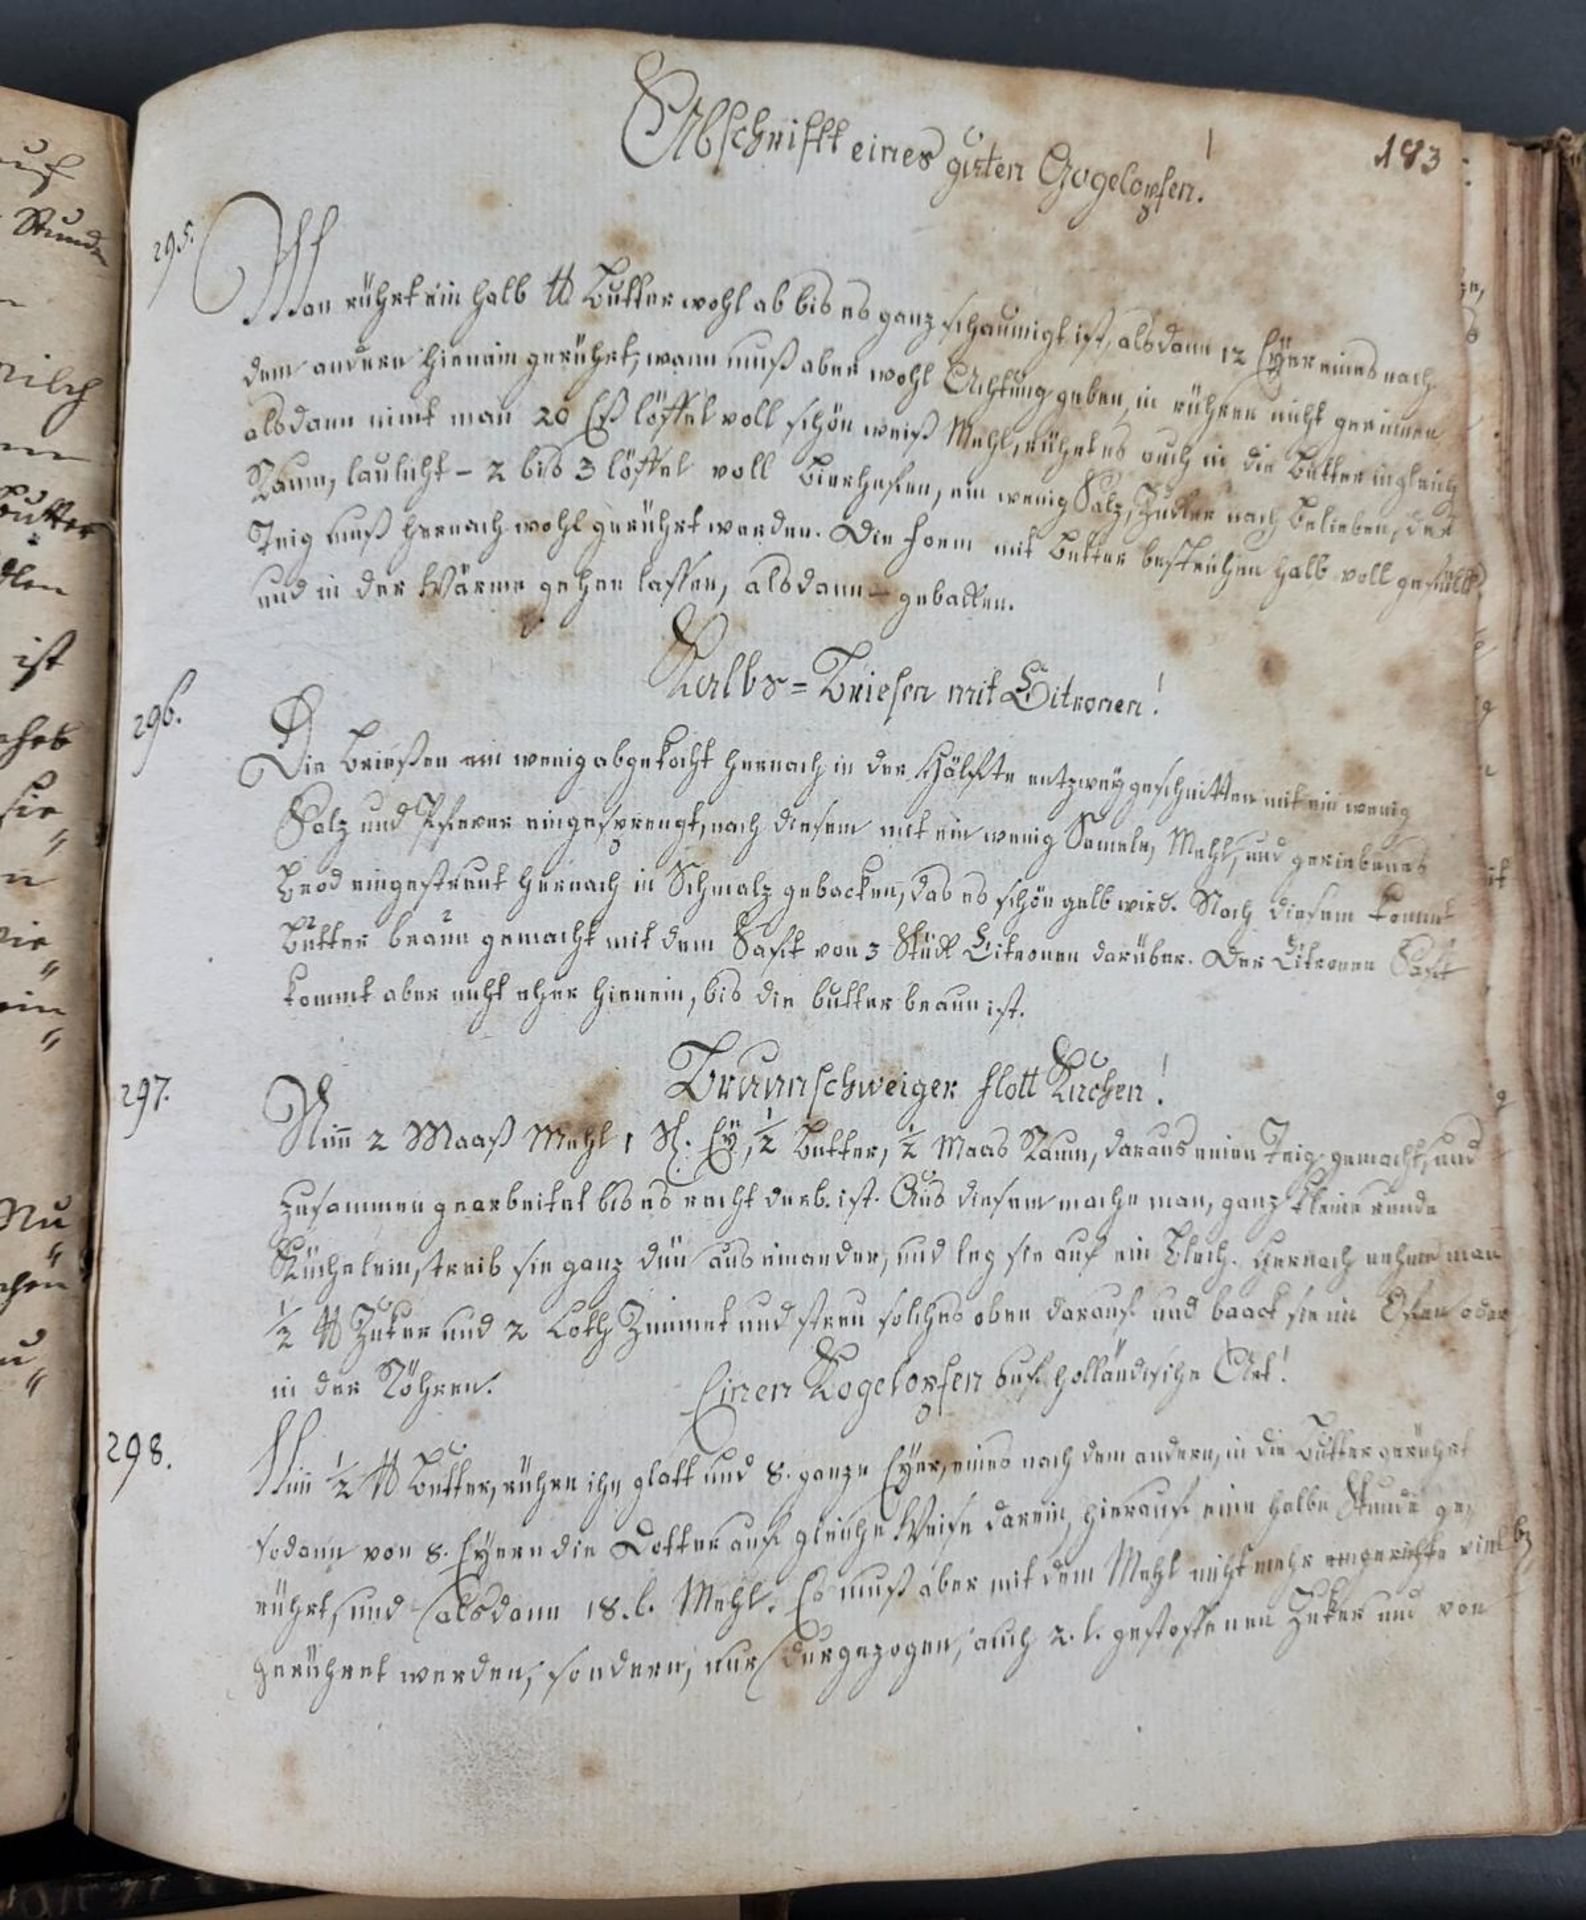 183
Abschrifft eines guten Gogelopfen!
295.
Man rührt ein halb ℔ Butter wohl ab bis es ganz schaumigt ist, alsdann 12 Eÿer eines nach
dem andern hienein gerührt, mann muß aber wohl Achtung geben, in rühren nicht gerinnen
alsdann nimt man 20 Eß löffel voll schön weiß Mehl, rühret es auch in die Butter ingleich
Raum, laulicht – 2 bis 3 löffel voll Bierhefen, ein wenig Salz, Zucker nach belieben, der
Teig muß hernach wohl gerührt werden. Die Form mit Butter bestrichen halb voll gefüllt
und in der Wärme gehen lassen, alsdann – gebacken.
296.
Kalbs=Briesen mit Citronen!
Die Brießen ein wenig abgekocht hernach in der Hälffte entzweÿ geschnitten mit ein wenig
Salz und Pfeffer eingesprengt, nach diesem mit ein wenig Semeln, Mehl, und geriebenes
Brod eingestreut hernach in Schmalz gebacken, das es schön gelb wird. Nach diesem kommt
Butter braun gemacht mit dem Safft von 3 Stück Citronen darüber. Der Citronen Safft
kommt aber nicht eher hienein, bis die butter braun ist.
297.
Braunschweiger flott Kuchen!
Nim̄ 2 Maaß Mehl 1 Eÿ, ½ Butter, ½ Maas Raum, daraus einen Teig gemacht, und
zusammen gearbeitet bis es recht derb. ist. Aus diesem mache man, ganz kleine runde
Küchelein, treib sie ganz dün̄ aus einander, und leg sie auf ein Blech. Hernach nehme man
½ ℔ Zuker und 2 Loth Zimmet und streu solches oben darauf und baack sie im Ofen oder
in der Röhren.
Einen Kogelopfen auf holländische Art!
298.
Nim̄ ½ ℔ Butter, rühre ihn glatt und 8. ganze Eÿer, eines nach dem andern, in die Butter gerührt
sodann von 8. Eÿern die Dotter auf gleiche Weise darein, hierauf eine halbe Stunde ge-
rührt, und alsdann 18. l. Mehl. Es muß aber mit dem Mehl nicht mehr viel
gerühret werden, sondern, nur durgezogen, auch 2. l. gestossenen Zuker und von